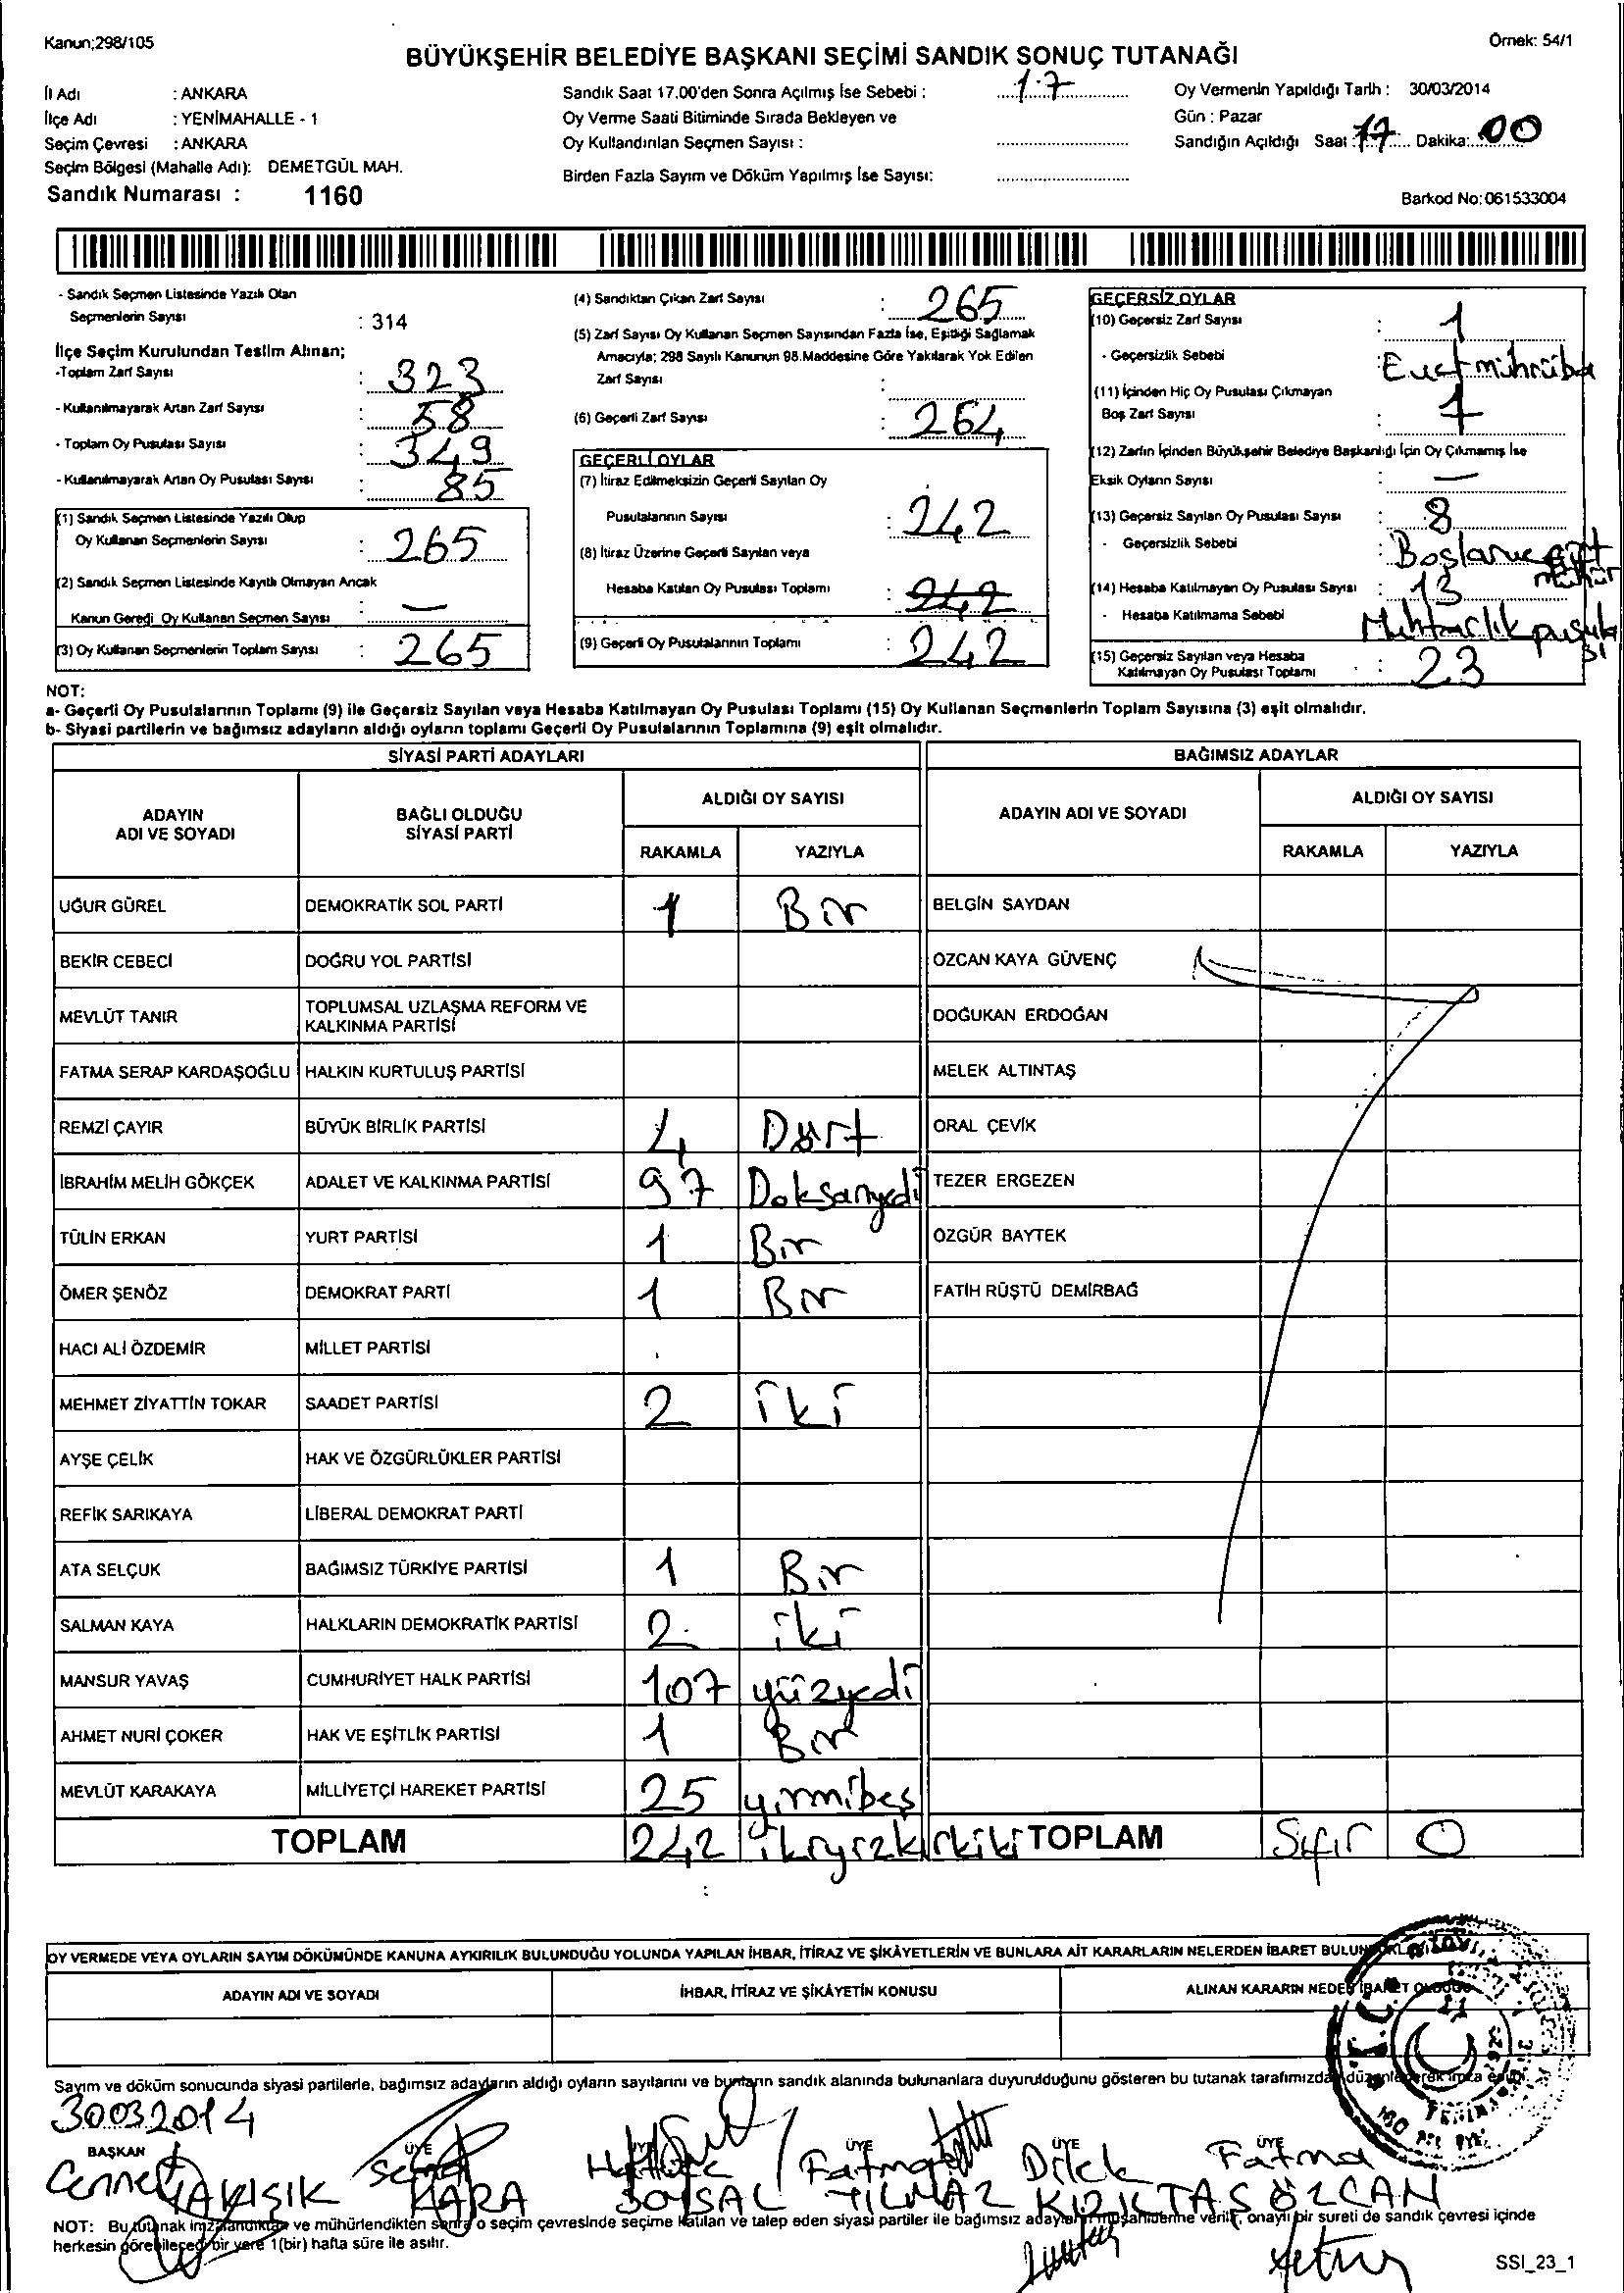 Kanun;298/105
Örnek: 54/1
BÜYÜKŞEHİR BELEDİYE BAŞKANI SEÇİMİ SANDIK SONUÇ TUTANAĞI
İl Adı : ANKARA
İlçe Adı : YENİMAHALLE - 1
Seçim Çevresi : ANKARA
Seçim Bölgesi (Mahalle Adı): DEMETGÜL MAH.
Sandık Numarası : 1160
Sandık Saat 17.00'den Sonra Açılmış İse Sebebi : 17
Oy Verme Saati Bitiminde Sırada Bekleyen ve
Oy Kullandırılan Seçmen Sayısı :
Birden Fazla Sayım ve Döküm Yapılmış İse Sayısı:
Oy Vermenin Yapıldığı Tarih : 30/03/2014
Gün : Pazar
Sandığın Açıldığı Saat : 17 Dakika: 00
Barkod No:061533004
- Sandık Seçmen Listesinde Yazılı Olan
Seçmenlerin Sayısı : 314
İlçe Seçim Kurulundan Teslim Alınan;
-Toplam Zarf Sayısı : 323
- Kullanılmayarak Artan Zarf Sayısı : 58
- Toplam Oy Pusulası Sayısı : 349
- Kullanılmayarak Artan Oy Pusulası Sayısı : 85
(1) Sandık Seçmen Listesinde Yazılı Olup
Oy Kullanan Seçmenlerin Sayısı : 265
(2) Sandık Seçmen Listesinde Kayıtlı Olmayan Ancak
Kanun Gereği Oy Kullanan Seçmen Sayısı : —
(3) Oy Kullanan Seçmenlerin Toplam Sayısı : 265
(4) Sandıktan Çıkan Zarf Sayısı : 265
(5) Zarf Sayısı Oy Kullanan Seçmen Sayısından Fazla İse, Eşitliği Sağlamak
Amacıyla; 298 Sayılı Kanunun 98.Maddesine Göre Yakılarak Yok Edilen
Zarf Sayısı :
(6) Geçerli Zarf Sayısı : 264
GEÇERLİ OYLAR
(7) İtiraz Edilmeksizin Geçerli Sayılan Oy
Pusulalarının Sayısı : 242
(8) İtiraz Üzerine Geçerli Sayılan veya
Hesaba Katılan Oy Pusulası Toplamı : 242
(9) Geçerli Oy Pusulalarının Toplamı : 242
GEÇERSİZ OYLAR
(10) Geçersiz Zarf Sayısı : 1
- Geçersizlik Sebebi :
(11) İçinden Hiç Oy Pusulası Çıkmayan
Boş Zarf Sayısı : 1
(12) Zarfın İçinden Büyükşehir Belediye Başkanlığı İçin Oy Çıkmamış İse
Eksik Oyların Sayısı : —
(13) Geçersiz Sayılan Oy Pusulası Sayısı : 8
- Geçersizlik Sebebi : mühür
(14) Hesaba Katılmayan Oy Pusulası Sayısı : 13
- Hesaba Katılmama Sebebi Muhtarlık pusulası
(15) Geçersiz Sayılan veya Hesaba
Katılmayan Oy Pusulası Toplamı : 23
NOT:
a- Geçerli Oy Pusulalarının Toplamı (9) ile Geçersiz Sayılan veya Hesaba Katılmayan Oy Pusulası Toplamı (15) Oy Kullanan Seçmenlerin Toplam Sayısına (3) eşit olmalıdır.
b- Siyasi partilerin ve bağımsız adayların aldığı oyların toplamı Geçerli Oy Pusulalarının Toplamına (9) eşit olmalıdır.
SİYASİ PARTİ ADAYLARI BAĞIMSIZ ADAYLAR
ADAYIN ADI VE SOYADI BAĞLI OLDUĞU SİYASİ PARTİ ALDIĞI OY SAYISI ADAYIN ADI VE SOYADI ALDIĞI OY SAYISI
RAKAMLA YAZIYLA RAKAMLA YAZIYLA
UĞUR GÜREL DEMOKRATİK SOL PARTİ 1 Bir BELGİN SAYDAN
BEKİR CEBECİ DOĞRU YOL PARTİSİ ÖZCAN KAYA GÜVENÇ
MEVLÜT TANIR TOPLUMSAL UZLAŞMA REFORM VE KALKINMA PARTİSİ DOĞUKAN ERDOĞAN
FATMA SERAP KARDAŞOĞLU HALKIN KURTULUŞ PARTİSİ MELEK ALTINTAŞ
REMZİ ÇAYIR BÜYÜK BİRLİK PARTİSİ 4 Dört ORAL ÇEVİK
İBRAHİM MELİH GÖKÇEK ADALET VE KALKINMA PARTİSİ 97 Doksanyedi TEZER ERGEZEN
TÜLİN ERKAN YURT PARTİSİ 1 Bir ÖZGÜR BAYTEK
ÖMER ŞENÖZ DEMOKRAT PARTİ 1 Bir FATİH RÜŞTÜ DEMİRBAĞ
HACI ALİ ÖZDEMİR MİLLET PARTİSİ
MEHMET ZİYATTİN TOKAR SAADET PARTİSİ 2 iki
AYŞE ÇELİK HAK VE ÖZGÜRLÜKLER PARTİSİ
REFİK SARIKAYA LİBERAL DEMOKRAT PARTİ
ATA SELÇUK BAĞIMSIZ TÜRKİYE PARTİSİ 1 Bir
SALMAN KAYA HALKLARIN DEMOKRATİK PARTİSİ 2 iki
MANSUR YAVAŞ CUMHURİYET HALK PARTİSİ 107 yüzyedi
AHMET NURİ ÇOKER HAK VE EŞİTLİK PARTİSİ 1 Bir
MEVLÜT KARAKAYA MİLLİYETÇİ HAREKET PARTİSİ 25 yirmibeş
TOPLAM 242 ikiyüzkırkiki TOPLAM Sıfır 0
OY VERMEDE VEYA OYLARIN SAYIM DÖKÜMÜNDE KANUNA AYKIRILIK BULUNDUĞU YOLUNDA YAPILAN İHBAR, İTİRAZ VE ŞİKÂYETLERİN VE BUNLARA AİT KARARLARIN NELERDEN İBARET
ADAYIN ADI VE SOYADI İHBAR, İTİRAZ VE ŞİKÂYETİN KONUSU ALINAN KARARIN
Sayım ve döküm sonucunda siyasi partilerle, bağımsız adayların aldığı oyların sayılarını ve bunların sandık alanında bulunanlara duyurulduğunu gösteren bu tutanak tarafımızdan
30032014
BAŞKAN ÜYE ÜYE ÜYE ÜYE ÜYE
Fatma Dilek Fatma
KARA SOYSAL YILMAZ KIZIKTAŞ ÖZCAN
NOT: Bu tutanak imzalandıktan ve mühürlendikten sonra o seçim çevresinde seçime katılan ve talep eden siyasi partiler ile bağımsız aday müşahidlerine verilir, onaylı bir sureti de sandık çevresi içinde
herkesin görebileceği bir yere 1(bir) hafta süre ile asılır.
SSI_23_1